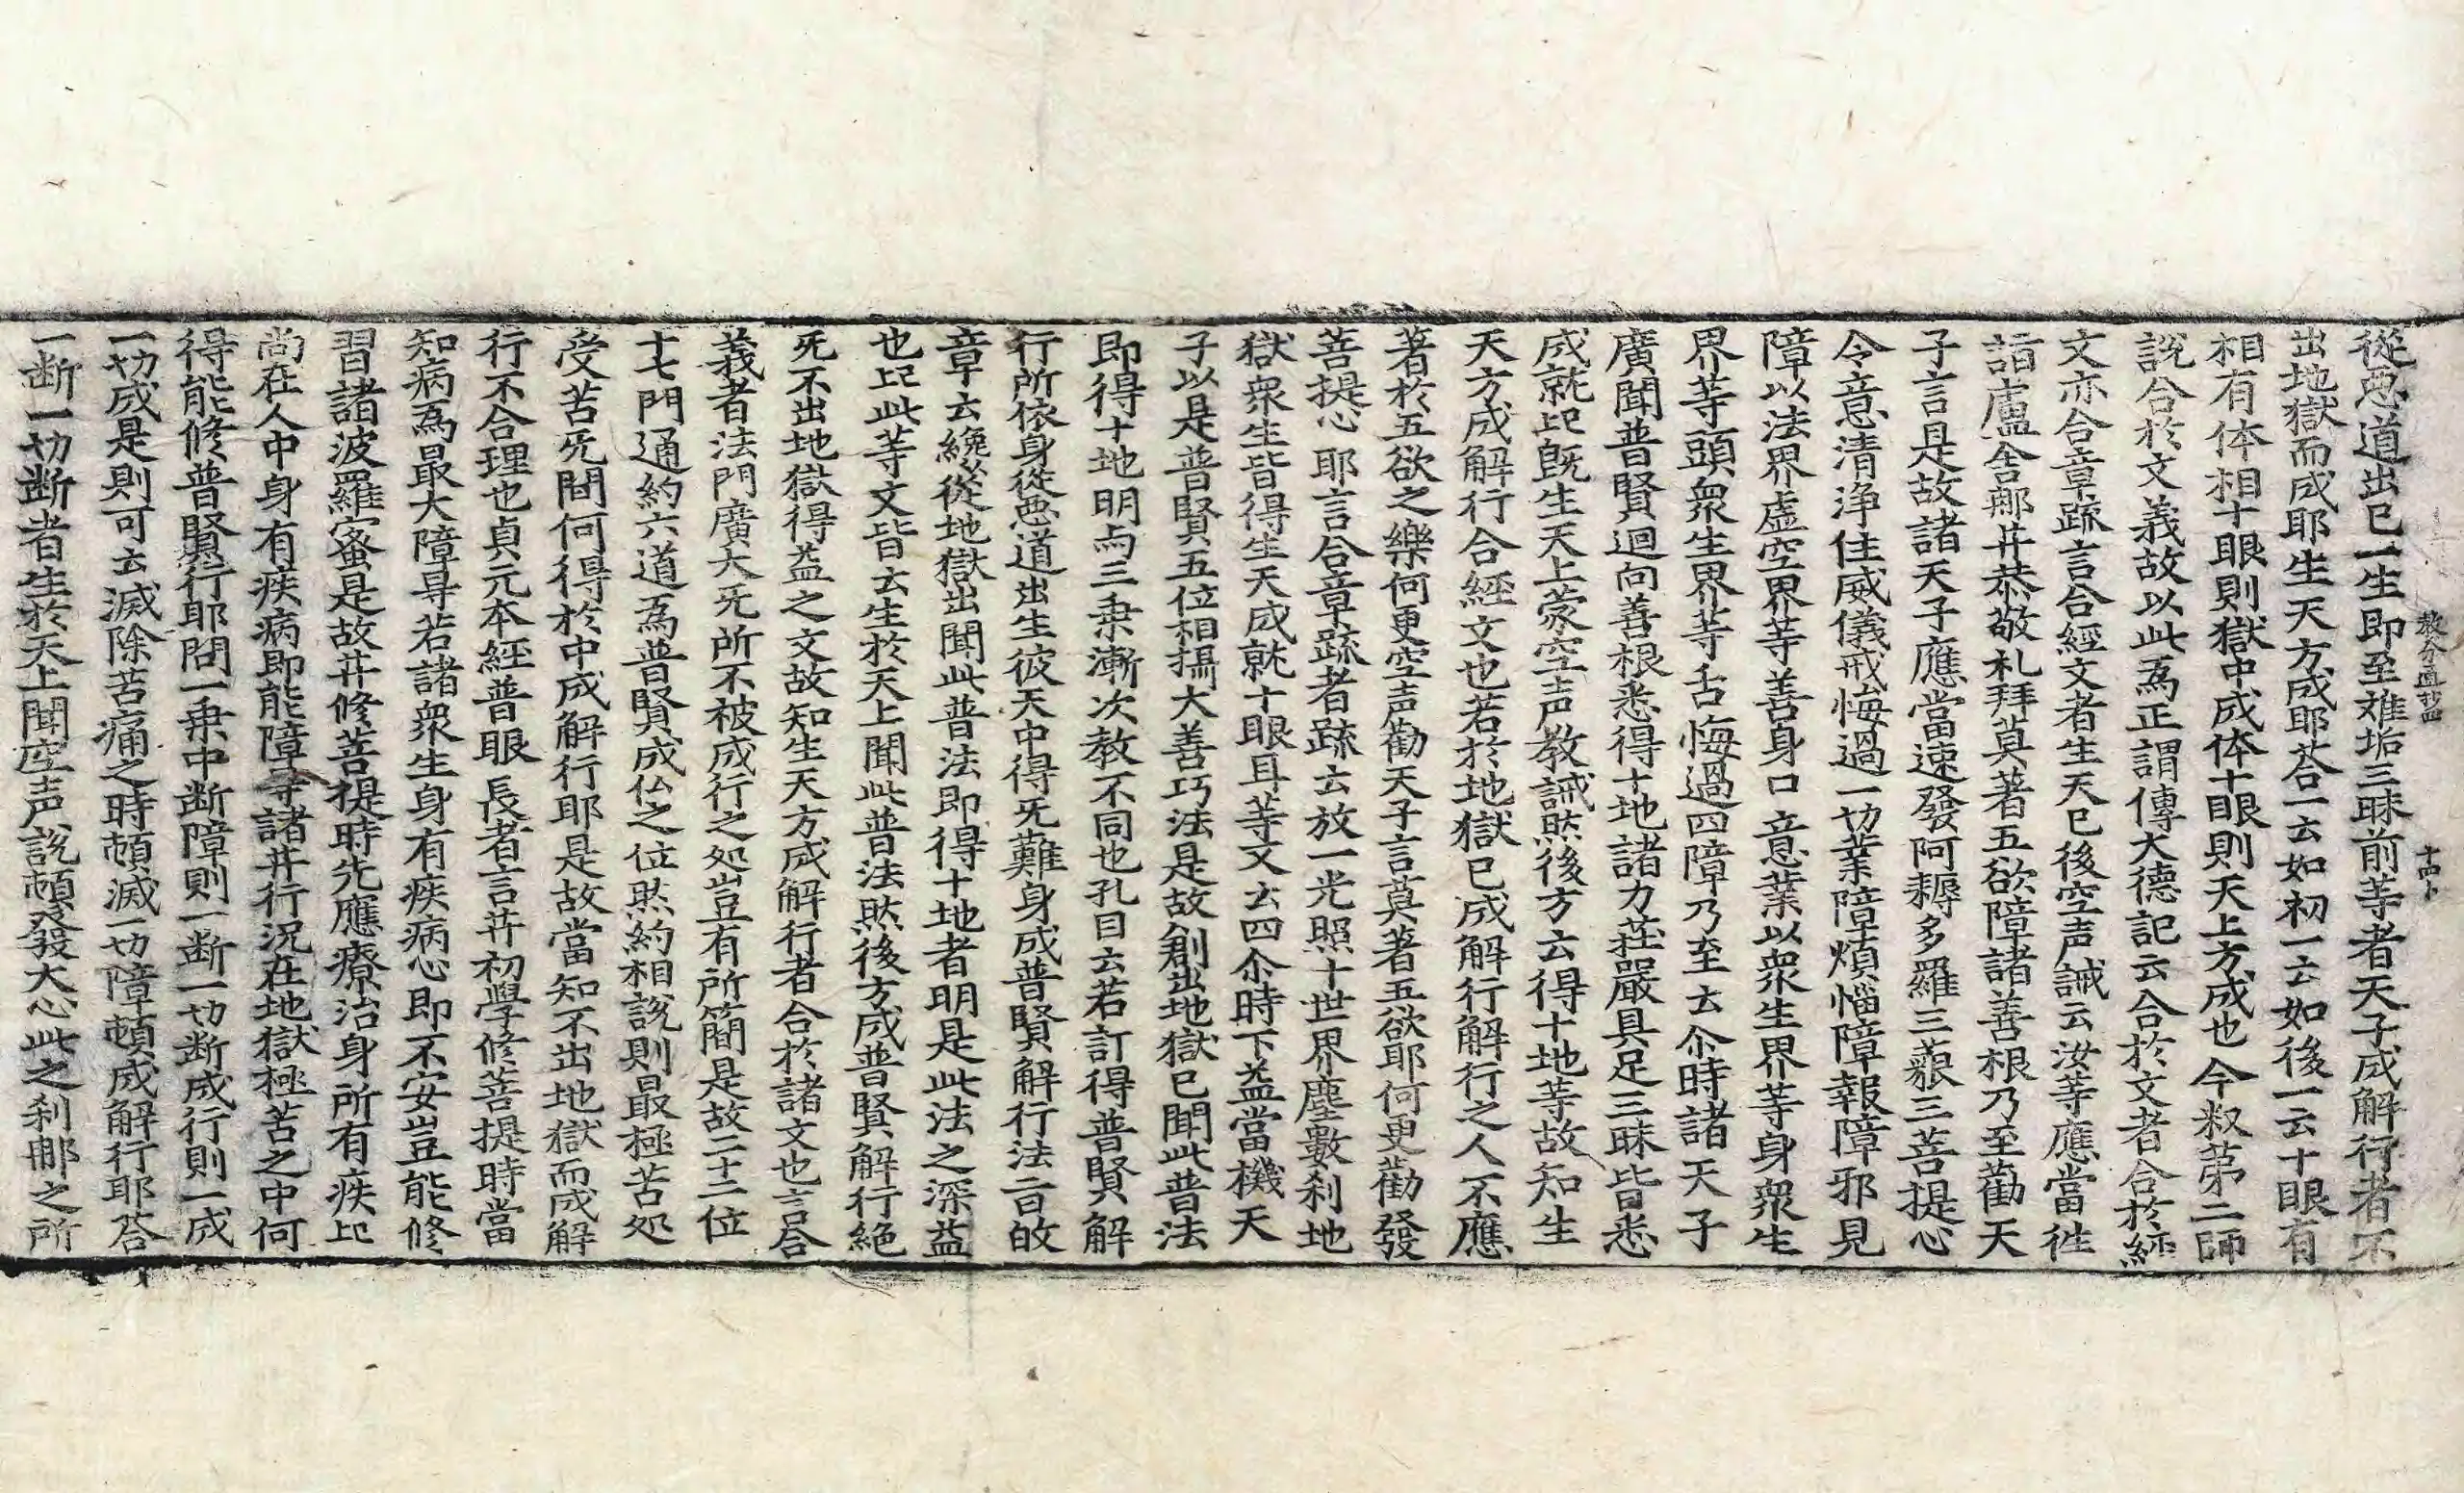 教分圓通抄四　十四卜
從悪道出已一生即至难垢三昧前等者天子成解行者不
出地獄而成耶生天方成耶荅一云如初一云如後一云十眼有
相有体相十眼則獄中成体十眼則天上方成也今叙苐二師
說合於文義故以此為正謂傳大德記云合於文者合於経
文亦合章䟽言合經文者生天已後空声誡云汝等應當徃
詣盧舎那井恭敬礼拜莫著五欲障諸善根乃至勸天
子言是故諸天子應當速發阿耨多羅三藐三菩提心
令意清浄住威儀戒悔過一切業障煩惱障報障邪見
障以法界虛空界等善身口意業以衆生界等身衆生
界等頭衆生界等舌悔過四障乃至云尒時諸天子
廣聞普賢迴向善根悉得十地諸力莊嚴具足三昧皆悉
成就此旣生天上蒙空声教誡然後方云得十地等故知生
天方成解行合經文也若於地獄已成解行解行之人不應
著於五欲之樂何更空声勸天子言莫著五欲耶何更勸發
菩提心耶言合章䟽者䟽云放一光照十世界塵數刹地
獄衆生皆得生天成就十眼耳等文云四尒時下益當機天
子以是普賢五位相攝大善巧法是故創出地獄已聞此普法
即得十地明与三乗漸次教不同也孔目云若訂得普賢解
行所依身從悪道出生彼天中得无難身成普賢解行法旨故
章云纔從地獄出聞此普法即得十地者明是此法之深益
也此此等文皆云生於天上聞此普法然後方成普賢解行絶
无不出地獄得益之文故知生天方成解行者合於諸文也言合
義者法門廣大无所不被成行之処豈有所簡是故二十二位
十七門通約六道為普賢成仏之位然約相說則最極苦処
受苦无間何得於中成解行耶是故當知不出地獄而成解
行不合理也貞元本經普眼長者言井初學修菩提時當
知病為最大障㝵若諸衆生身有疾病心即不安豈能修
習諸波羅蜜是故井修菩提時先應療治身所有疾此
尚在人中身有疾病即能障㝵諸井行況在地獄極苦之中何
得能修普賢行耶問一乗中断障則一断一切断成行則一成
一切成是則可云滅除苦痛之時頓滅一切障頓成解行耶荅
一断一切断者生於天上聞空声說頓發大心此之刹那之所